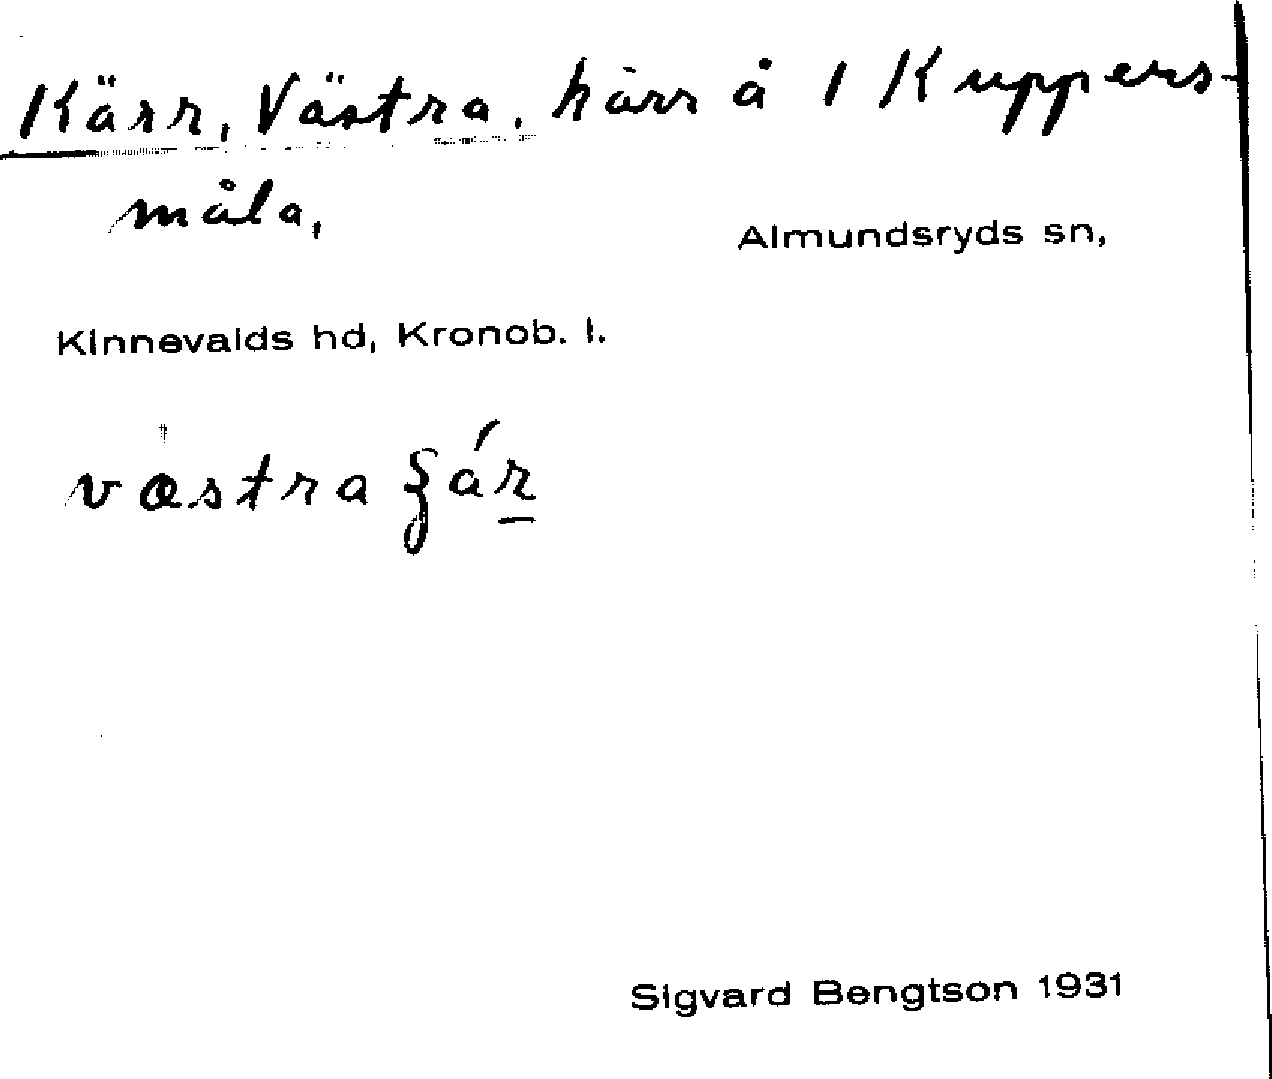 Kärr, Västra, kärr å 1 Kuppers-
måla,
Almundsryds sn,
Kinnevalds hd, Kronob. l.
Sigvard Bengtson 1931